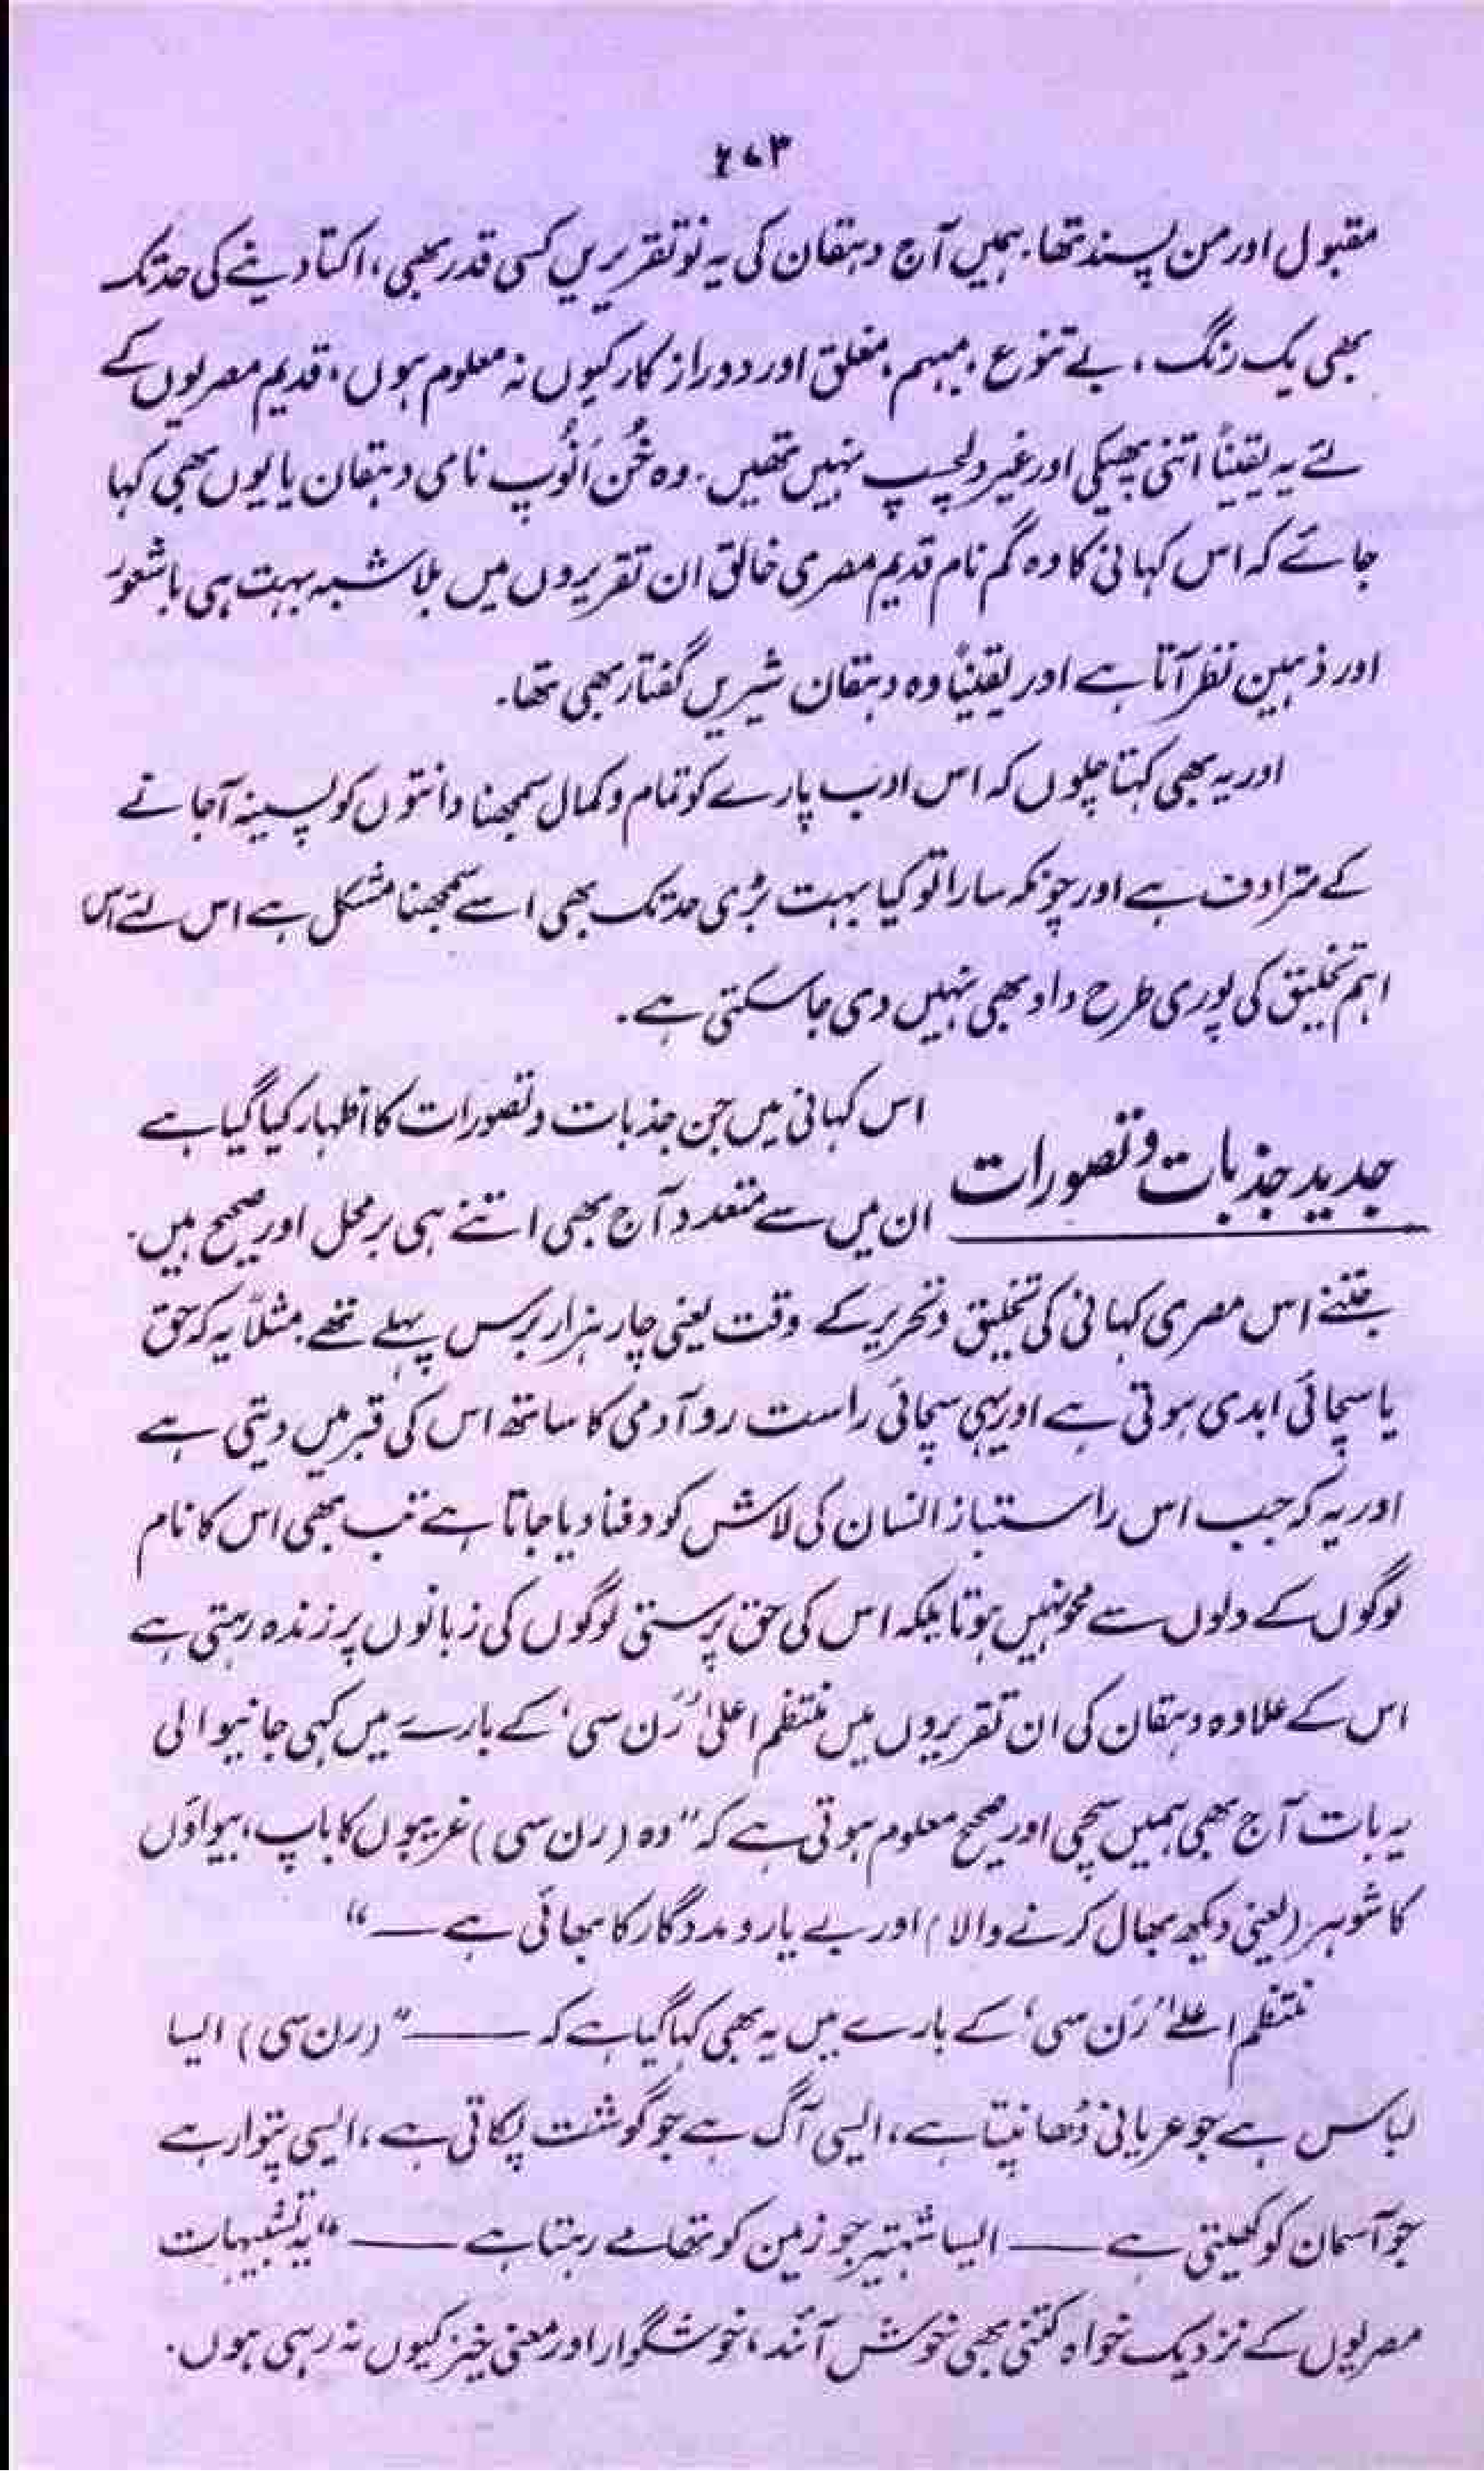 ۶۷۳
مقبول اور من پسند تھا۔ ہمیں آج دہقان کی یہ نو تقریریں کسی قدر بھی، اکتا دینے کی حد تک
بھی یک رنگ، بے تنوع، مبہم، مغلق اور دور از کار کیوں نہ معلوم ہوں، قدیم مصریوں کے
لئے یہ یقیناً اتنی پھیکی اور غیر دلچسپ نہیں تھیں۔ وہ خُن اَنُوپ نامی دہقان یا یوں بھی کہا
جائے کہ اس کہانی کا وہ گم نام قدیم مصری خالق ان تقریروں میں بلاشبہ بہت ہی باشعور
اور ذہین نظر آتا ہے اور یقیناً وہ دہقان شیریں گفتار بھی تھا۔
اور یہ بھی کہتا چلوں کہ اس ادب پارے کو تمام و کمال سمجھنا دانتوں کو پسینہ آجانے
کے مترادف ہے اور چونکہ سارا تو کیا بہت بڑی حد تک بھی اسے سمجھنا مشکل ہے اس لئے اس
اہم تخلیق کی پوری طرح داد بھی نہیں دی جاسکتی ہے۔
جدید جذبات و تصورات
اس کہانی میں جن جذبات و تصورات کا اظہار کیا گیا ہے
ان میں سے متعدد آج بھی اتنے ہی برمحل اور صحیح ہیں۔
جتنے اس مصری کہانی کی تخلیق و تحریر کے وقت یعنی چار ہزار برس پہلے تھے۔ مثلاً یہ کہ حق
یا سچائی ابدی ہوتی ہے اور یہی سچائی راست رو آدمی کا ساتھ اس کی قبر میں دیتی ہے
اور یہ کہ جب اس راستباز انسان کی لاش کو دفنا دیا جاتا ہے تب بھی اس کا نام
لوگوں کے دلوں سے محو نہیں ہوتا بلکہ اس کی حق پرستی لوگوں کی زبانوں پر زندہ رہتی ہے
اس کے علاوہ دہقان کی ان تقریروں میں منتظم اعلیٰ ’رَن سی‘ کے بارے میں کہی جانیوالی
یہ بات آج بھی ہمیں سچی اور صحیح معلوم ہوتی ہے کہ ”وہ (رن سی) غریبوں کا باپ، بیواؤں
کا شوہر (یعنی دیکھ بھال کرنے والا) اور بے یار و مددگار کا بھائی ہے —“
منتظم اعلےٰ ’رَن سی‘ کے بارے میں یہ بھی کہا گیا ہے کہ —— ”(رن سی) ایسا
لباس ہے جو عریانی ڈھانپتا ہے، ایسی آگ ہے جو گوشت پکاتی ہے، ایسی پتوار ہے
جو آسمان کو کھیتی ہے —— ایسا شہتیر جو زمین کو تھامے رہتا ہے ——“ یہ تشبیہات
مصریوں کے نزدیک خواہ کتنی بھی خوش آئند، خوشگوار اور معنی خیز کیوں نہ رہی ہوں۔